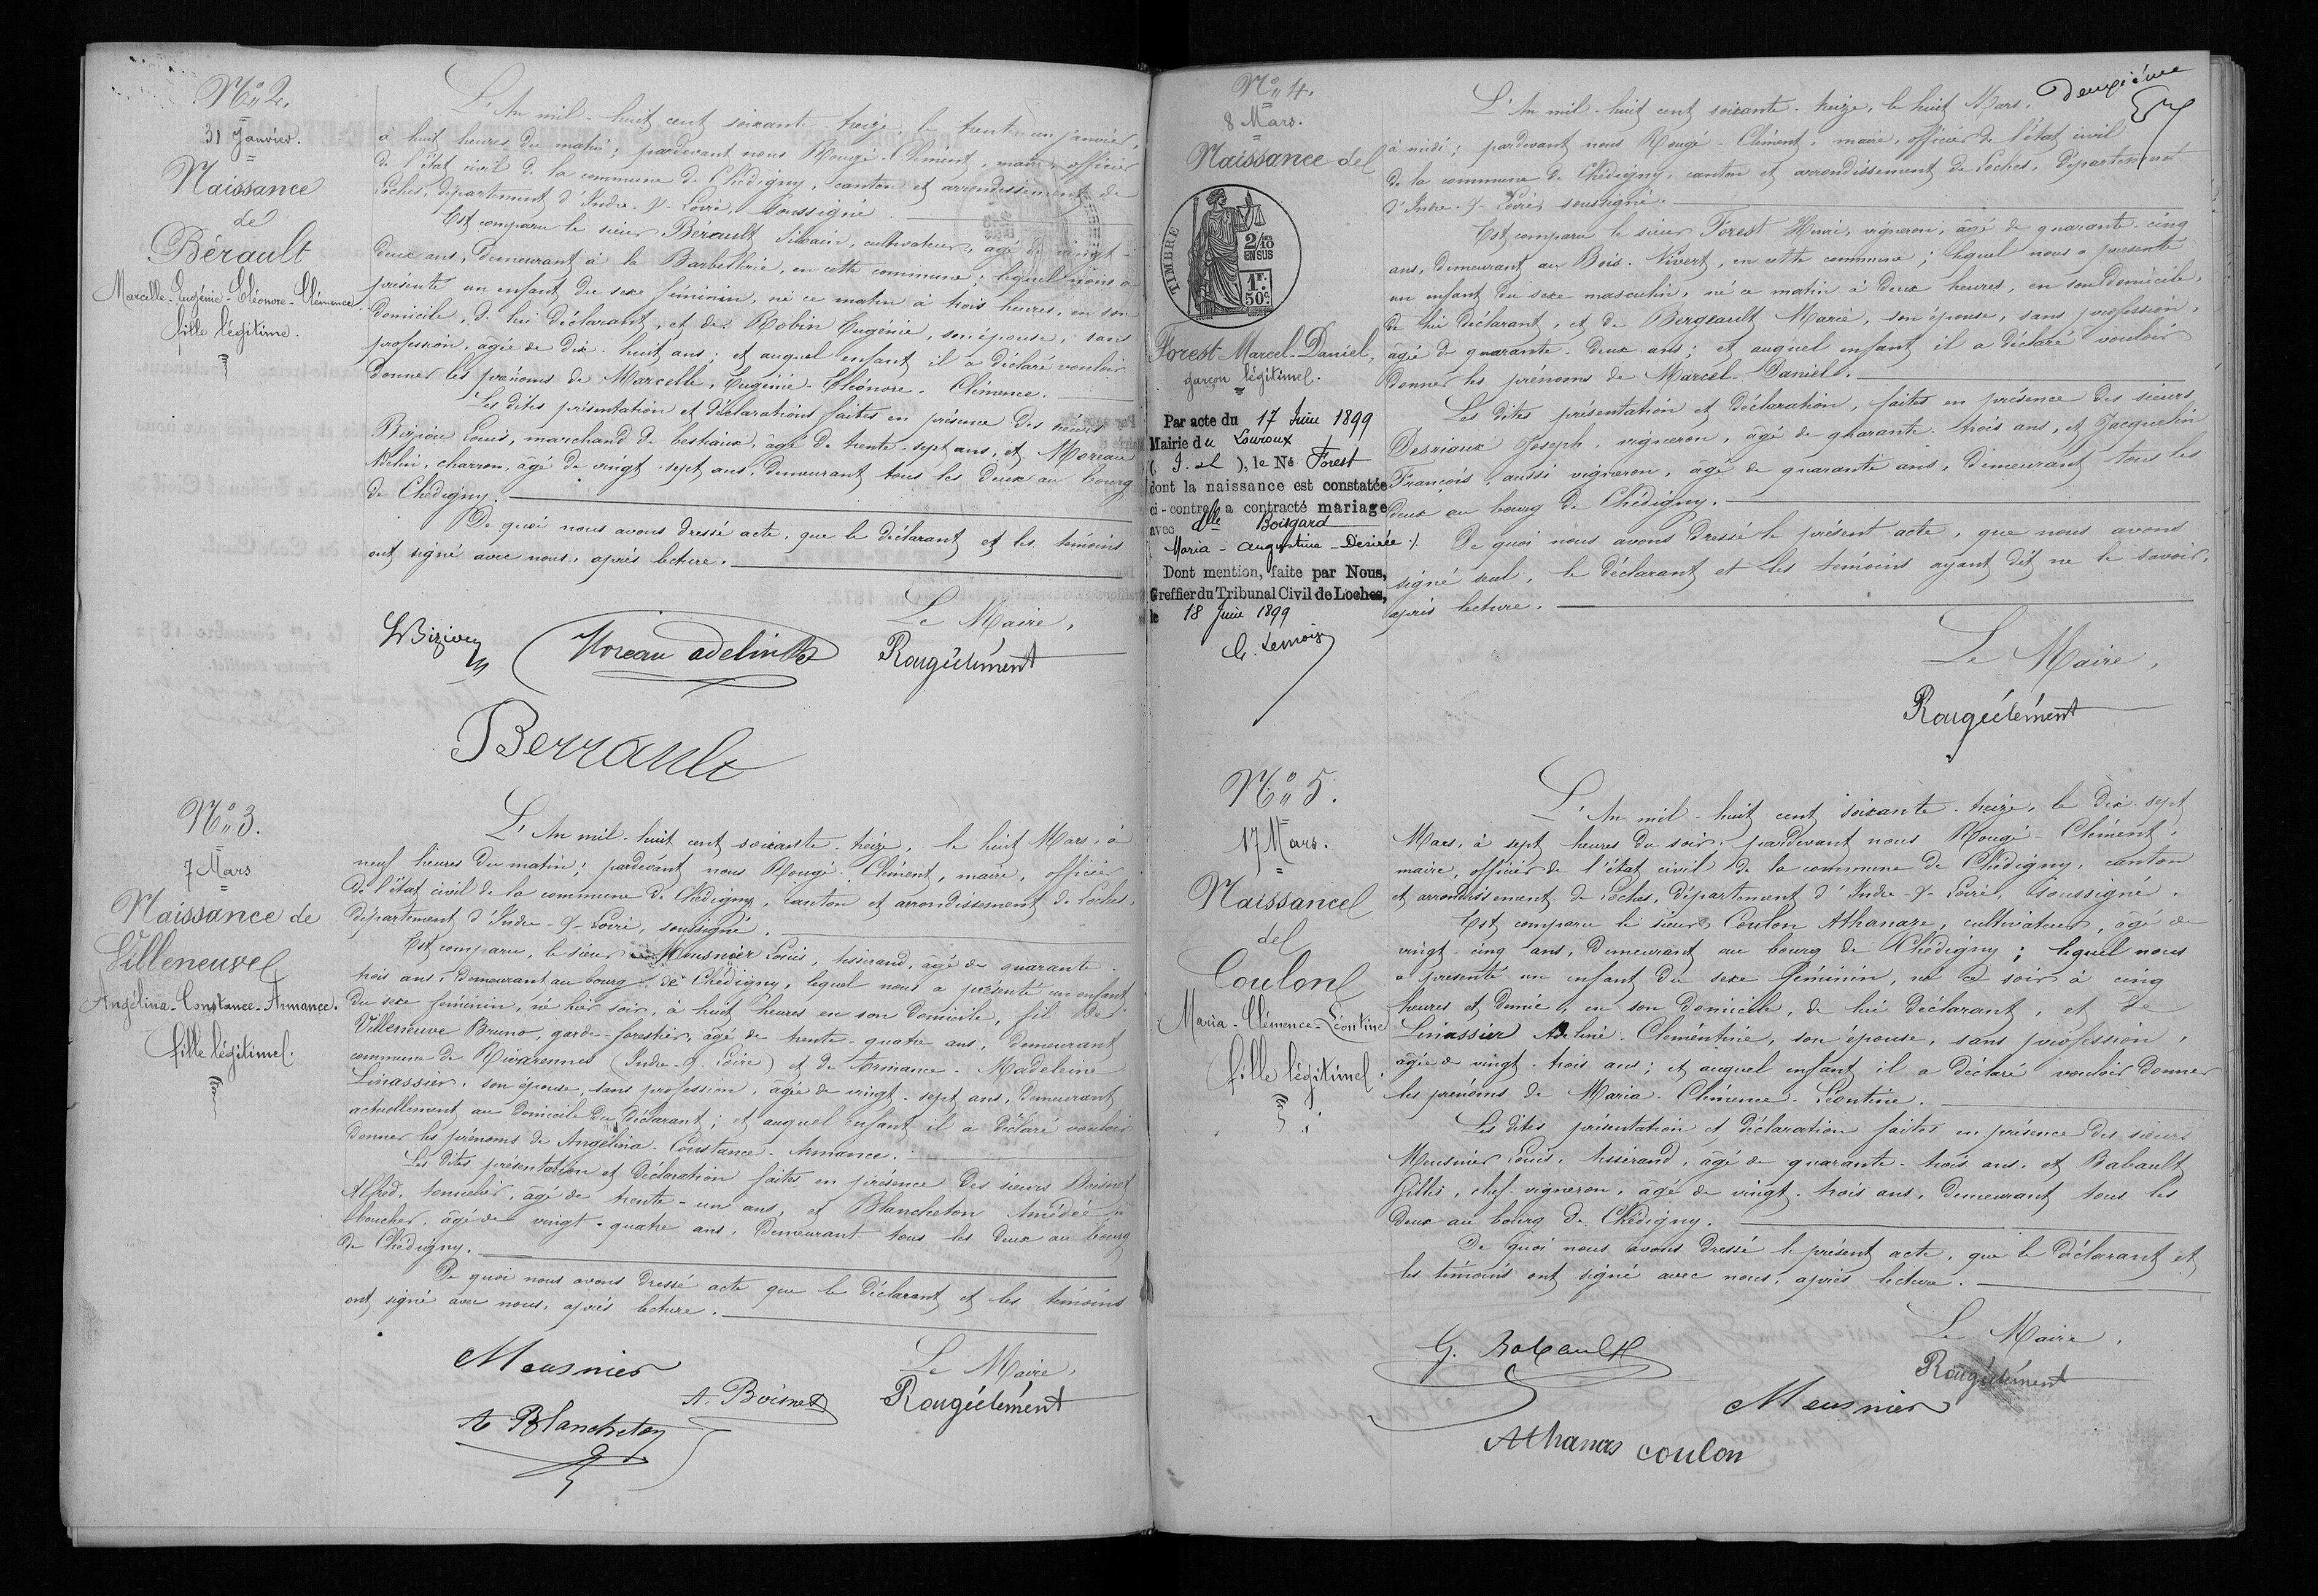 N° 2.
31 Janvier.
Naissance
de
Bérault
Marcelle-Eugénie-Eléonore-Clémence
fille légitime.
L'An mil-huit cent soixante treize, le trente un janvier,
à huit heures du matin; pardevant nous Rougé-Clément, maire, officier
de l'état civil de la commune de Chédigny, canton et arrondissement de
Loches, département d'Indre-&-Loire, soussigné.
Est comparu le sieur Bérault Silvain, cultivateur, âgé de vingt-
deux ans, demeurant à la Barbetterie, en cette commune; lequel nous a
présenté un enfant du sexe féminin, né ce matin à trois heures, en son
domicile, de lui déclarant, et de Robin Eugénie, son épouse, sans
profession, âgée de dix-huit ans; et auquel enfant il a déclaré vouloir
donner les prénoms de Marcelle, Eugénie-Eléonore-Clémence.
Les dites présentation et déclarations faites en présence des sieurs
Louis, marchand de bestiaux, âgé de trente-sept ans, et Moreau
Adelin, charron, âgé de vingt-sept ans, demeurant tous les deux au bourg
de Chédigny.
De quoi nous avons dressé acte, que le déclarant et les témoins
ont signé avec nous, après lecture.
Le Maire,
Moreau adelin
Rougéclément
Berrault
N° 3.
7 Mars
Naissance de
Villeneuve
Angélina-Constance-Armance.
fille légitime.
L'An mil-huit cent soixante-treize, le huit Mars, à
neuf heures du matin; pardevant nous Rougé-Clément, maire, officier
de l'état civil de la commune de Chédigny, canton et arrondissement de Loches,
département d'Indre-&-Loire, soussigné.
Est comparu, le sieur Meusnier Louis, tisserand, âgé de quarante-
trois ans, demeurant au bourg de Chédigny, lequel nous a présenté un enfant
du sexe féminin, né hier soir, à huit heures en son domicile, fil de
Villeneuve Bruno, garde-forestier, âgé de trente-quatre ans, demeurant
commune de Rivarennes (Indre-&-Loire) et de Armance-Madeleine
Linassier, son épouse, sans profession, âgée de vingt-sept ans, demeurant
actuellement au domicile du déclarant; et auquel enfant il a déclaré vouloir
donner les prénoms de Angélina-Constance-Armance.
Les dites présentation et déclaration faites en présence des sieurs Boisnet
Alfred, tonnelier, âgé de trente-un ans, et Blancheton Amédée
boucher, âgé de vingt-quatre ans, demeurant tous les deux au bourg
de Chédigny.
De quoi nous avons dressé acte que le déclarant et les témoins
ont signé avec nous, après lecture.
Meusnier
Le Maire,
A. Boisnet
Rougéclément
A Blancheton
Deuxième
N° 4.
8 Mars.
Naissance de
TIMBRE
2/10
EN SUS
1F.
50c.
Forest Marcel-Daniel,
garçon légitime.
Par acte du 17 Juin 1899
Mairie du Louroux
(I. et L), le Né Forest
dont la naissance est constatée
ci-contre a contracté mariage
avec Dlle Boisgard
Maria-Augustine-Désirée ./.
Dont mention, faite par Nous,
Greffier du Tribunal Civil de Loches,
le 18 Juin 1899
L'An mil-huit cent soixante-treize, le huit Mars,
à midi; pardevant nous Rougé-Clément, maire, officier de l'état civil
de la commune de Chédigny, canton et arrondissement de Loches, département
d'Indre-&-Loire, soussigné.
Est comparu le sieur Forest Henri, vigneron, âgé de quarante-cinq
ans, demeurant au Bois-Vivert, en cette commune; lequel nous a présenté
un enfant du sexe masculin, né ce matin à deux heures, en son domicile,
de lui déclarant, et de Bergeault Marie, son épouse, sans profession,
âgée de quarante-deux ans; et auquel enfant il a déclaré vouloir
donner les prénoms de Marcel-Daniel.
Les dites présentation et déclaration, faites en présence des sieurs
Desriaux Joseph, vigneron, âgé de quarante-trois ans, et Jacquelin
François, aussi vigneron, âgé de quarante ans, demeurant tous les
deux au bourg de Chédigny.
De quoi nous avons dressé le présent acte, que nous avons
signé seul, le déclarant et les témoins ayant dit ne le savoir,
après lecture.
Le Maire,
Rougéclément
N° 5.
17 Mars.
Naissance
de
Coulon
Maria-Clémence-Léontine
fille légitime.
L'An mil-huit cent soixante-treize, le dix-sept
Mars, à sept heures du soir, pardevant nous Rougé-Clément,
maire, officier de l'état civil de la commune de Chédigny, canton
et arrondissement de Loches, département d'Indre-&-Loire, soussigné.
Est comparu le sieur Coulon Athanase, cultivateur, âgé de
vingt-cinq ans, demeurant au bourg de Chédigny; lequel nous
a présenté un enfant du sexe féminin, né ce soir à cinq
heures et demie, en son domicile, de lui déclarant, et de
Linassier Adeline-Clémentine, son épouse, sans profession,
âgée de vingt-trois ans; et auquel enfant il a déclaré vouloir donner
les prénoms de Maria-Clémence-Léontine.
Les dites présentation et déclaration faites en présence des sieurs
Meusnier Louis, tisserand, âgé de quarante-trois ans, et Babault
Gilles, chef-vigneron, âgé de vingt-trois ans, demeurant tous les
deux au bourg de Chédigny.
De quoi nous avons dressé le présent acte, que le déclarant et
les témoins ont signé avec nous, après lecture.
Le Maire,
G. Babault
Rougéclément
Meusnier
Athanas coulon